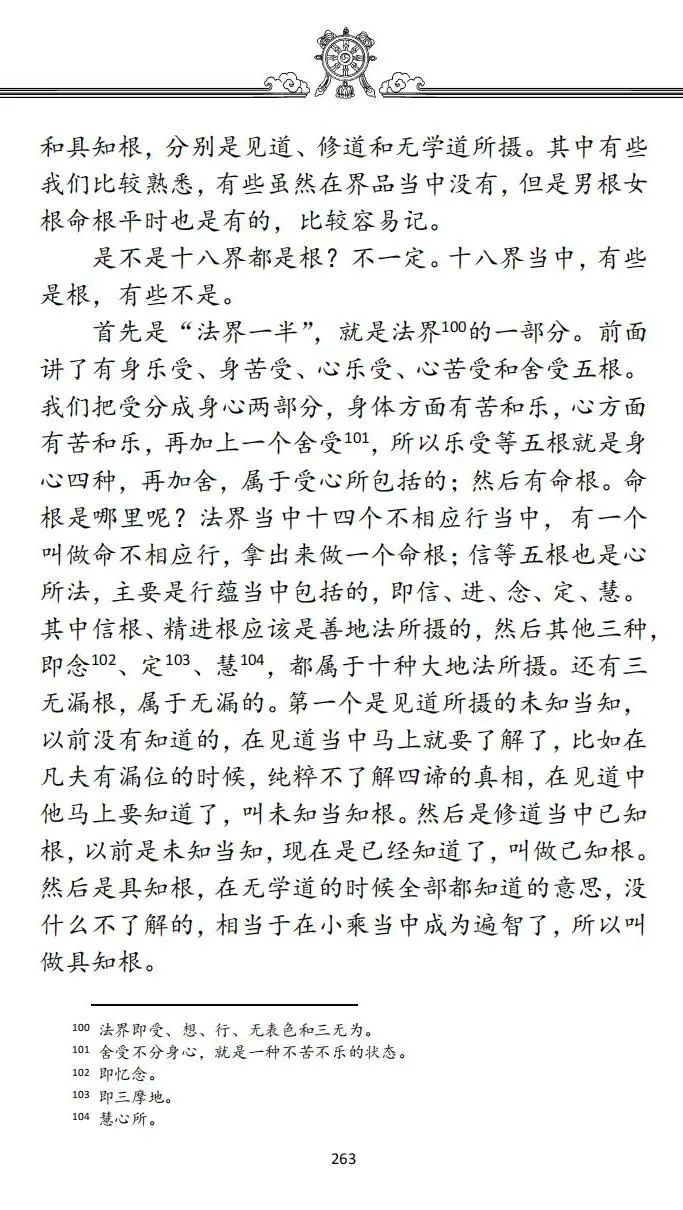 和具知根，分别是见道、修道和无学道所摄。其中有些
我们比较熟悉，有些虽然在界品当中没有，但是男根女
根命根平时也是有的，比较容易记。
是不是十八界都是根？不一定。十八界当中，有些
是根，有些不是。
首先是“法界一半”，就是法界100的一部分。前面
讲了有身乐受、身苦受、心乐受、心苦受和舍受五根。
我们把受分成身心两部分，身体方面有苦和乐，心方面
有苦和乐，再加上一个舍受101，所以乐受等五根就是身
心四种，再加舍，属于受心所包括的；然后有命根。命
根是哪里呢？法界当中十四个不相应行当中，有一个
叫做命不相应行，拿出来做一个命根；信等五根也是心
所法，主要是行蕴当中包括的，即信、进、念、定、慧。
其中信根、精进根应该是善地法所摄的，然后其他三种，
即念102、定103、慧104，都属于十种大地法所摄。还有三
无漏根，属于无漏的。第一个是见道所摄的未知当知，
以前没有知道的，在见道当中马上就要了解了，比如在
凡夫有漏位的时候，纯粹不了解四谛的真相，在见道中
他马上要知道了，叫未知当知根。然后是修道当中已知
根，以前是未知当知，现在是已经知道了，叫做已知根。
然后是具知根，在无学道的时候全部都知道的意思，没
什么不了解的，相当于在小乘当中成为遍智了，所以叫
做具知根。
100 法界即受、想、行、无表色和三无为。
101 舍受不分身心，就是一种不苦不乐的状态。
102 即忆念。
103 即三摩地。
104 慧心所。
263